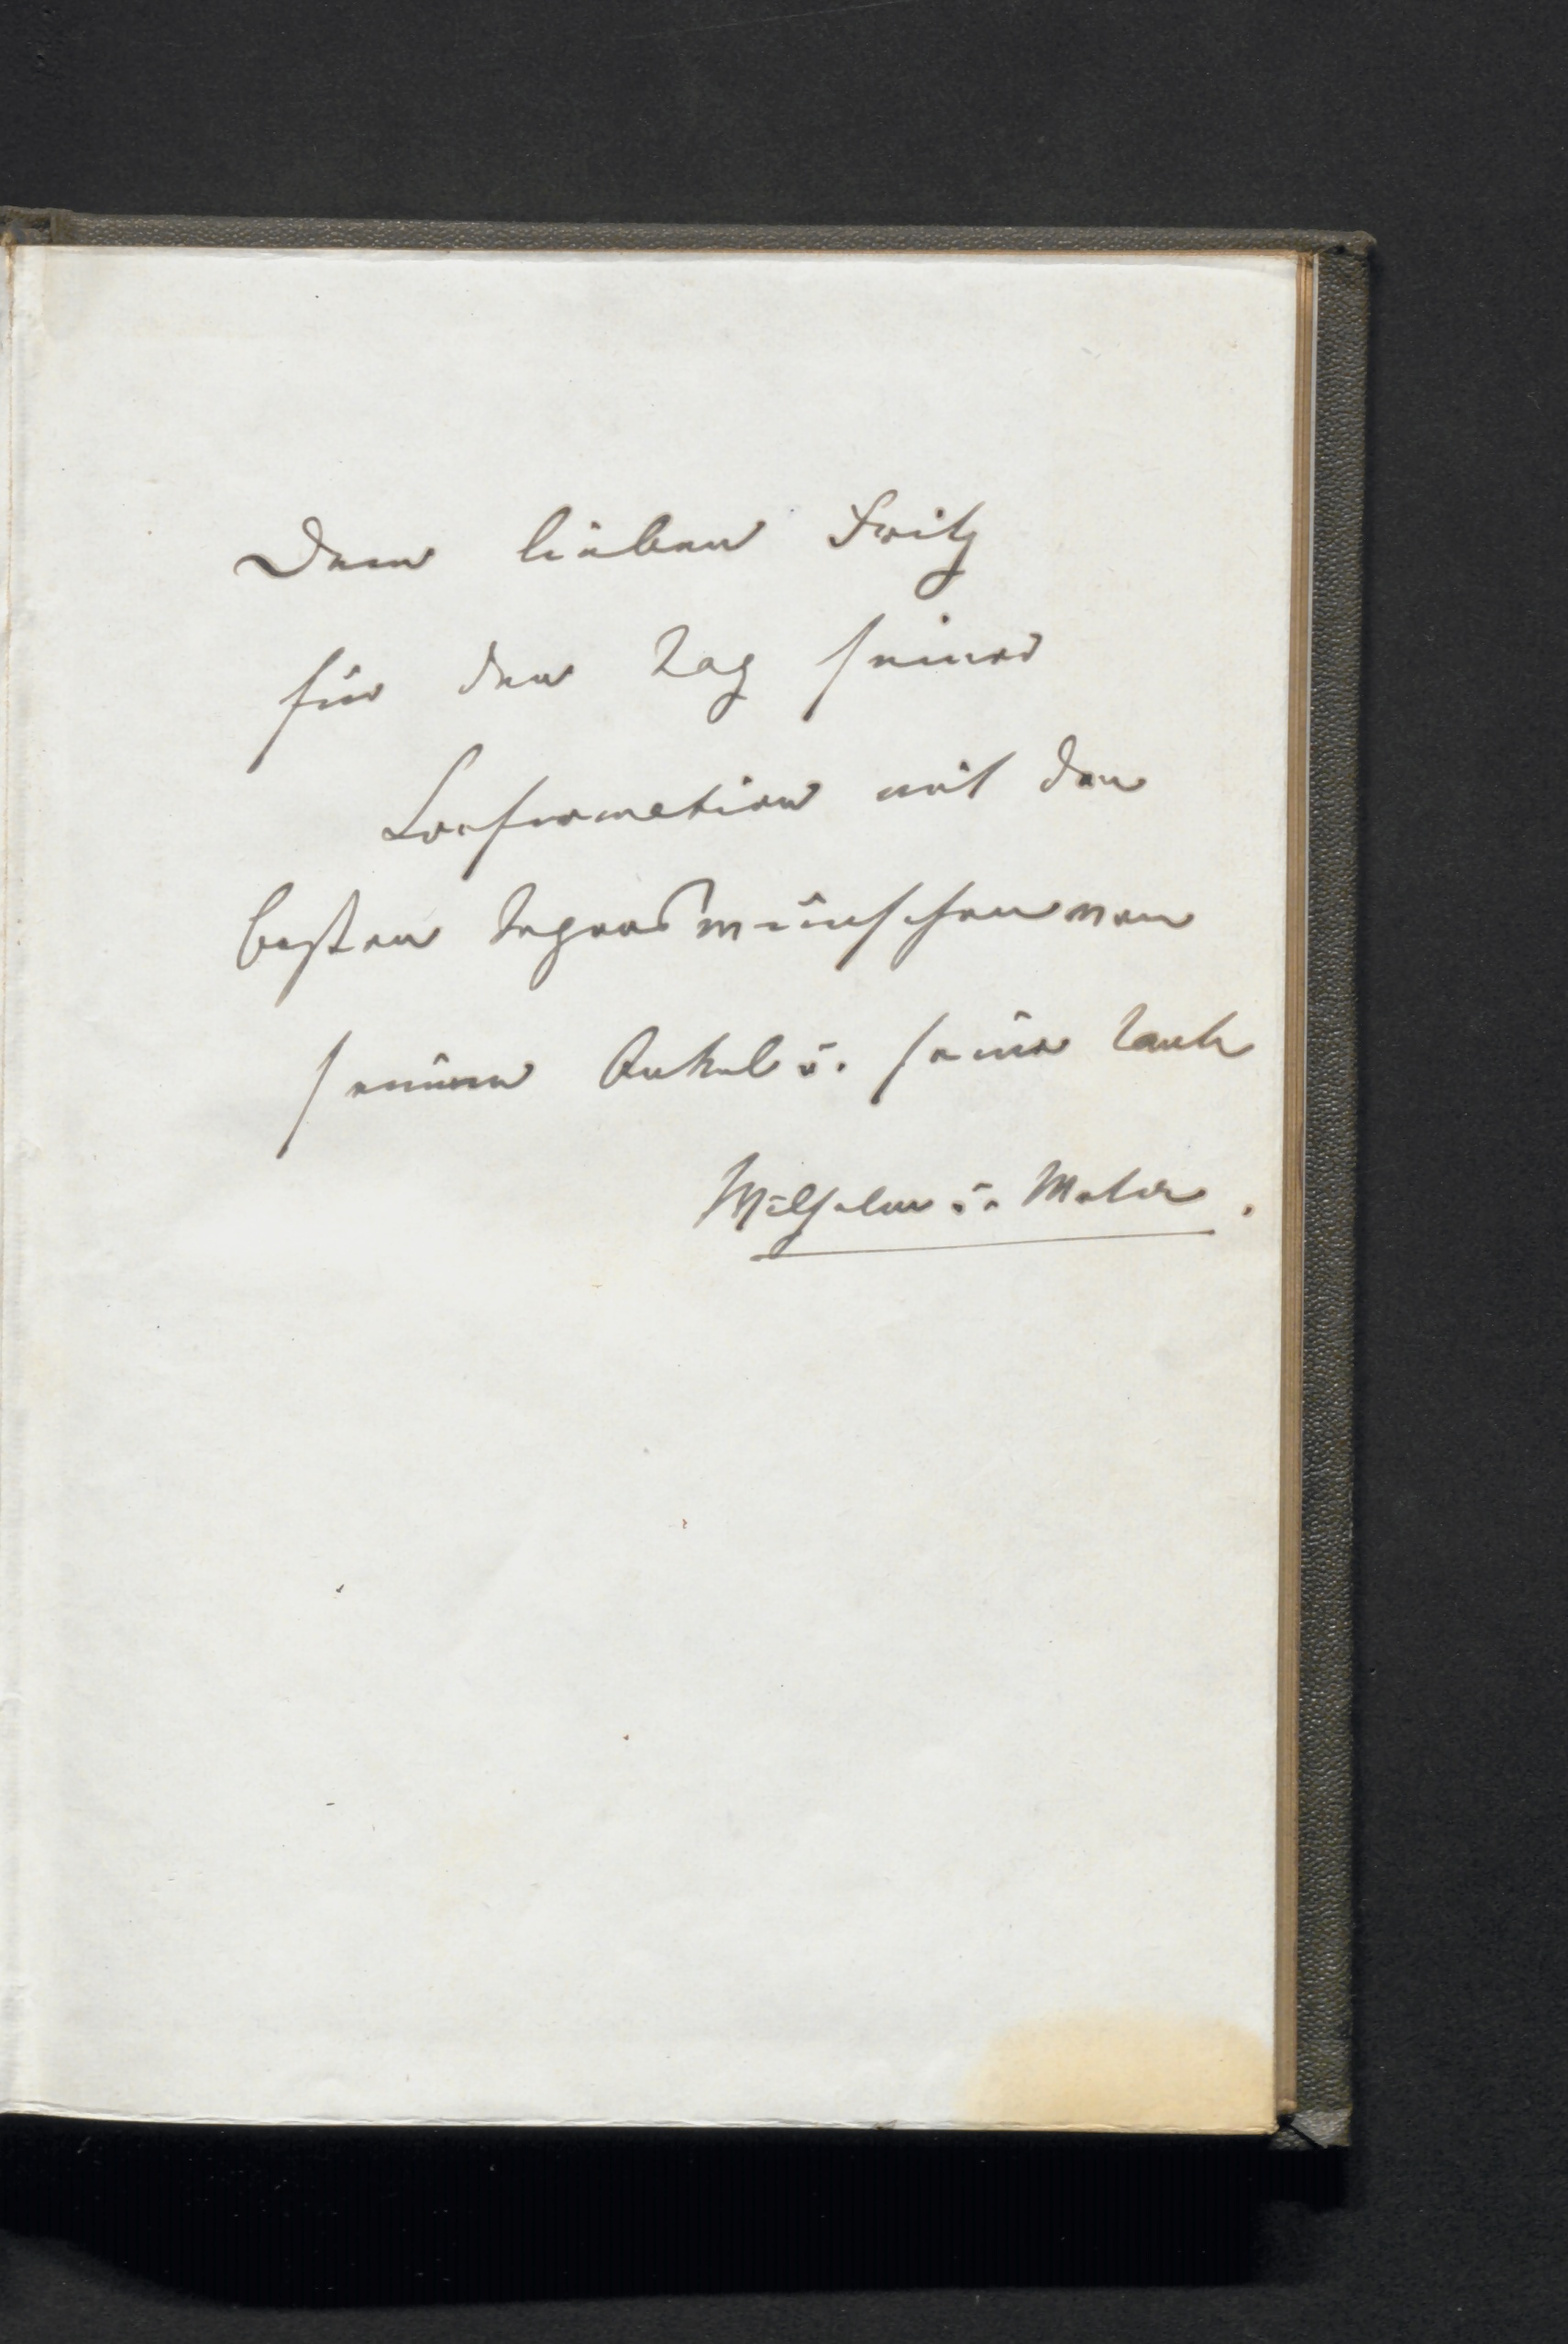 Dem lieben Fritz
für den Tag seiner
Confirmation mit den
besten Segenswünschen von
seinem Onkel u. seiner Tante
Wilhelm u.